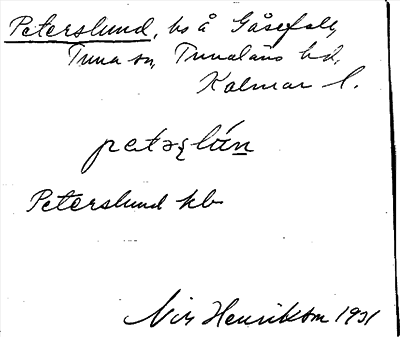 Peterslund, bs å Gåsefall,
Tuna sn, Tunaläns hd,
Kalmar l.
petəʂlún
Peterslund kb
Nils Henrikson 1931